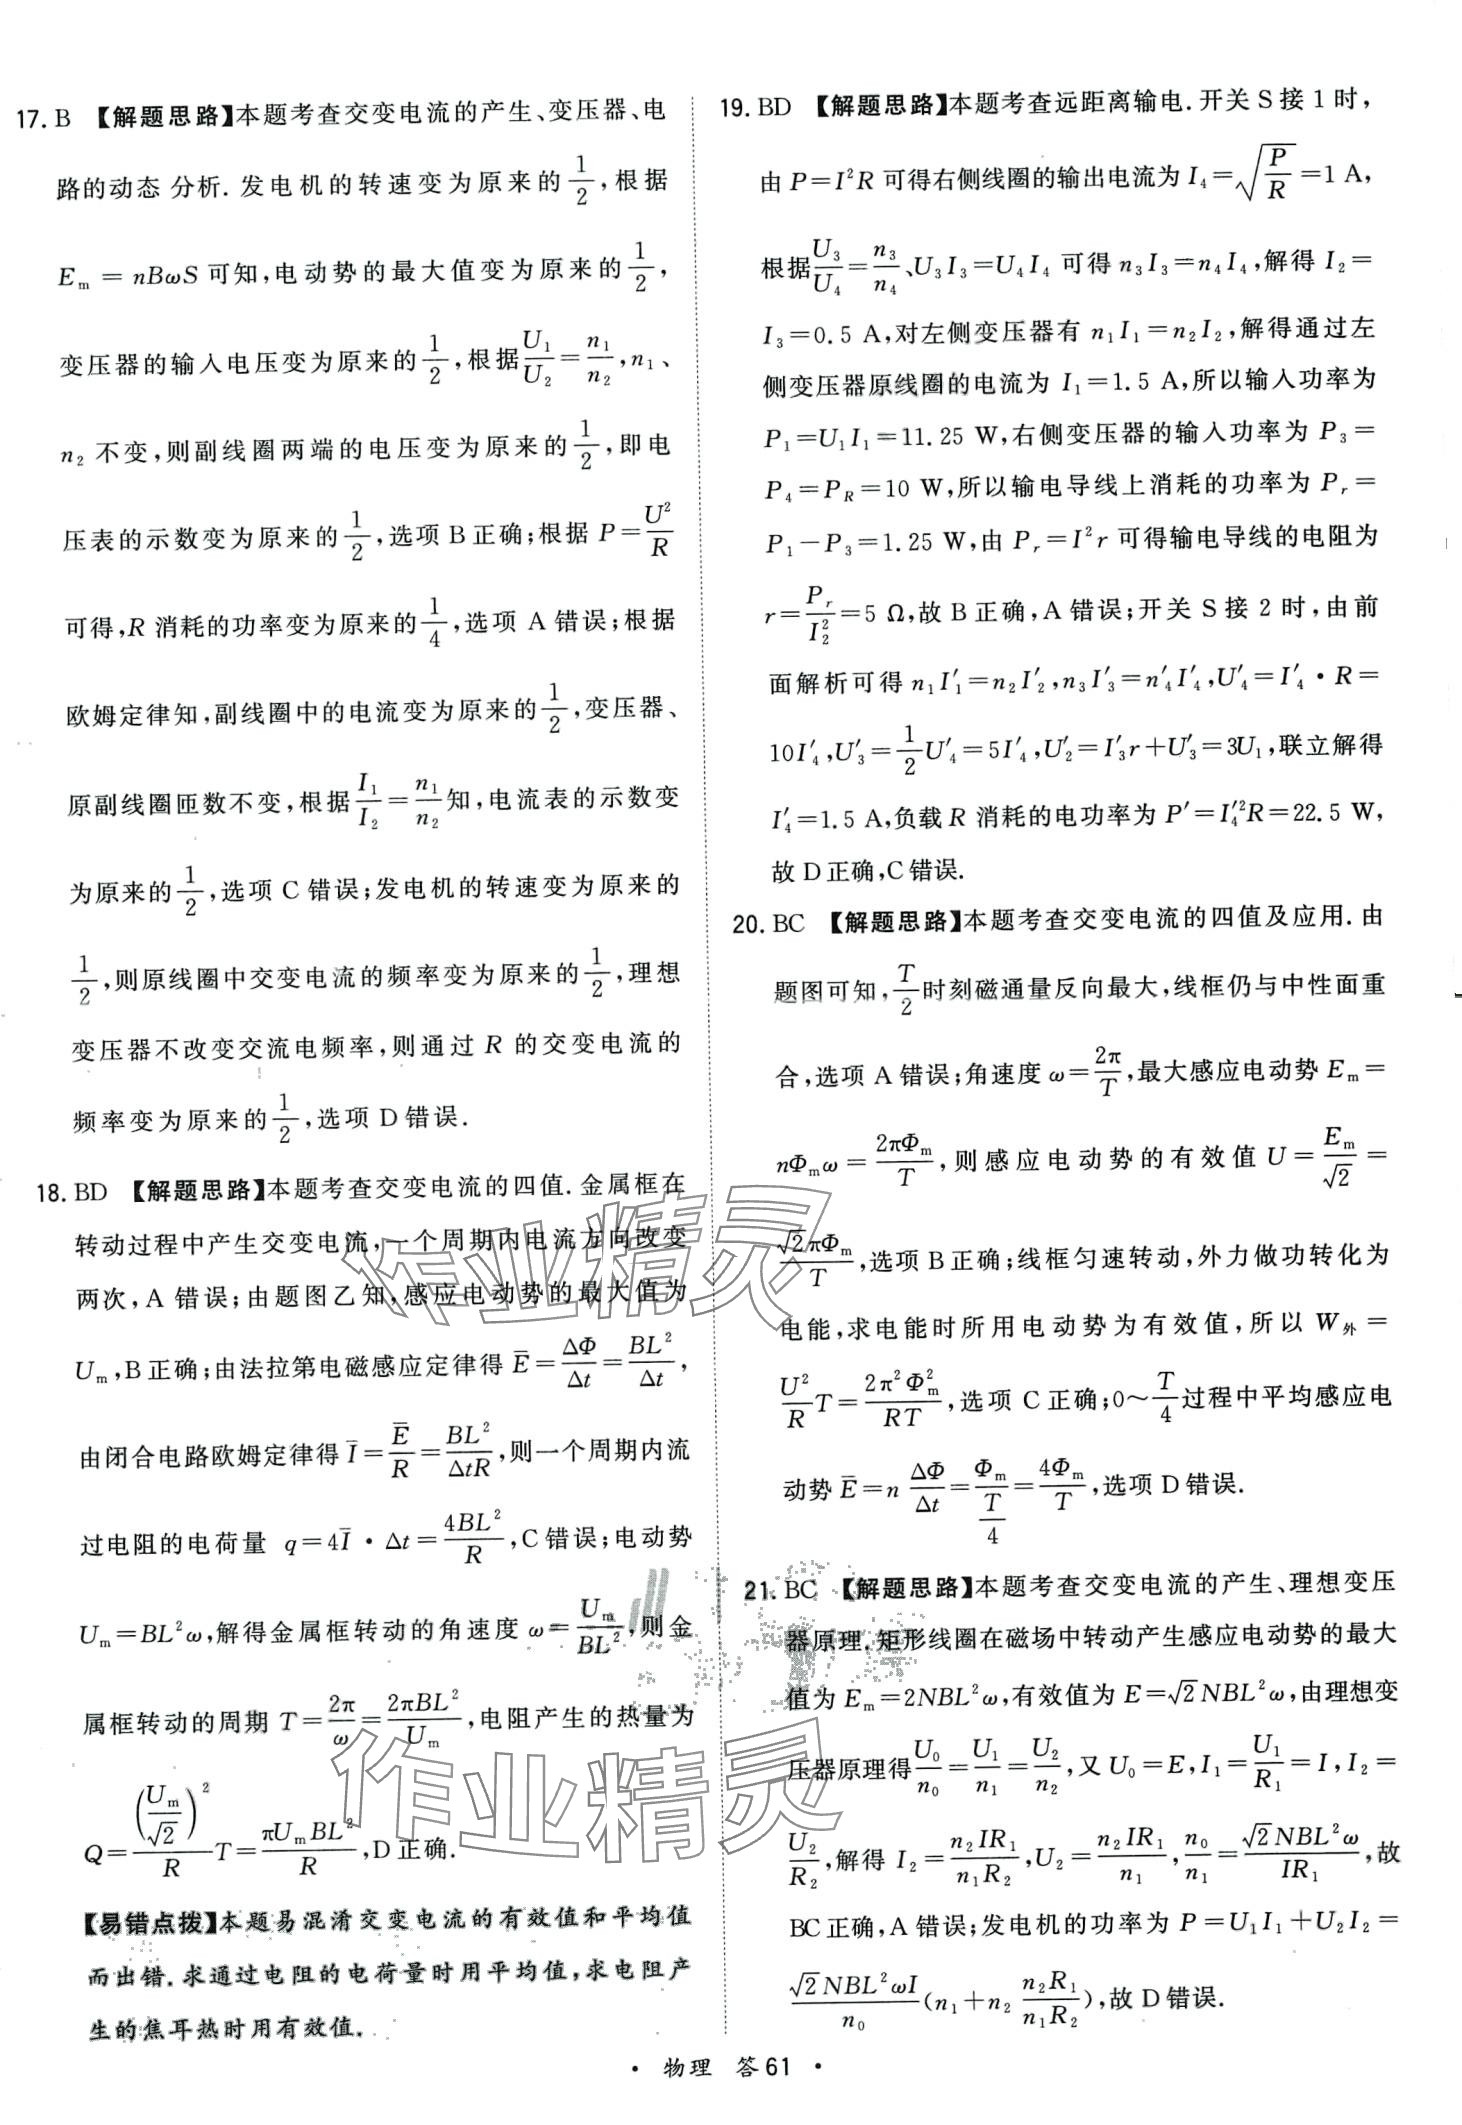 17. B 【解题思路】本题考查交变电流的产生、变压器、电
路的动态 分析. 发电机的转速变为原来的1/2,根据
E_m = nBωS 可知,电动势的最大值变为原来的1/2,
变压器的输入电压变为原来的1/2,根据U_1/U_2=n_1/n_2,n_1、
n_2 不变,则副线圈两端的电压变为原来的1/2,即电
压表的示数变为原来的1/2,选项 B 正确;根据 P=U²/R
可得,R 消耗的功率变为原来的1/4,选项 A 错误;根据
欧姆定律知,副线圈中的电流变为原来的1/2,变压器、
原副线圈匝数不变,根据I_1/I_2=n_1/n_2知,电流表的示数变
为原来的1/2,选项 C 错误;发电机的转速变为原来的
1/2,则原线圈中交变电流的频率变为原来的1/2,理想
变压器不改变交流电频率,则通过 R 的交变电流的
频率变为原来的1/2,选项 D 错误.
18. BD 【解题思路】本题考查交变电流的四值. 金属框在
转动过程中产生交变电流,一个周期内电流方向改变
两次,A 错误;由题图乙知,感应电动势的最大值为
U_m,B 正确;由法拉第电磁感应定律得 E̅=ΔΦ/Δt=BL²/Δt,
由闭合电路欧姆定律得 I̅=E̅/R=BL²/ΔtR,则一个周期内流
过电阻的电荷量 q=4I̅·Δt=4BL²/R,C 错误;电动势
U_m=BL²ω,解得金属框转动的角速度 ω=U_m/BL²,则金
属框转动的周期 T=2π/ω=2πBL²/U_m,电阻产生的热量为
Q=(U_m/√2)²/R T=πU_mBL²/R,D 正确.
【易错点拨】本题易混淆交变电流的有效值和平均值
而出错.求通过电阻的电荷量时用平均值,求电阻产
生的焦耳热时用有效值.
19. BD 【解题思路】本题考查远距离输电. 开关 S 接 1 时,
由 P=I²R 可得右侧线圈的输出电流为 I_4=√(P/R)=1 A,
根据U_3/U_4=n_3/n_4、U_3I_3=U_4I_4 可得 n_3I_3=n_4I_4,解得 I_2=
I_3=0.5 A,对左侧变压器有 n_1I_1=n_2I_2,解得通过左
侧变压器原线圈的电流为 I_1=1.5 A,所以输入功率为
P_1=U_1I_1=11.25 W,右侧变压器的输入功率为 P_3=
P_4=P_R=10 W,所以输电导线上消耗的功率为 P_r=
P_1-P_3=1.25 W,由 P_r=I²r 可得输电导线的电阻为
r=P_r/I_2²=5 Ω,故 B 正确,A 错误;开关 S 接 2 时,由前
面解析可得 n_1I′_1=n_2I′_2,n_3I′_3=n′_4I′_4,U′_4=I′_4·R=
10I′_4,U′_3=1/2U′_4=5I′_4,U′_2=I′_3r+U′_3=3U_1,联立解得
I′_4=1.5 A,负载 R 消耗的电功率为 P′=I′_4²R=22.5 W,
故 D 正确,C 错误.
20. BC 【解题思路】本题考查交变电流的四值及应用. 由
题图可知,T/2时刻磁通量反向最大,线框仍与中性面重
合,选项 A 错误;角速度 ω=2π/T,最大感应电动势 E_m=
nΦ_mω=2πΦ_m/T,则感应电动势的有效值 U=E_m/√2=
√2πΦ_m/T,选项 B 正确;线框匀速转动,外力做功转化为
电能,求电能时所用电动势为有效值,所以 W_外=
U²/R T=2π²Φ_m²/RT,选项 C 正确;0~T/4过程中平均感应电
动势 E̅=n ΔΦ/Δt=Φ_m/(T/4)=4Φ_m/T,选项 D 错误.
21. BC 【解题思路】本题考查交变电流的产生、理想变压
器原理. 矩形线圈在磁场中转动产生感应电动势的最大
值为 E_m=2NBL²ω,有效值为 E=√2NBL²ω,由理想变
压器原理得U_0/n_0=U_1/n_1=U_2/n_2,又 U_0=E,I_1=U_1/R_1=I,I_2=
U_2/R_2,解得 I_2=n_2IR_1/n_1R_2,U_2=n_2IR_1/n_1,n_0/n_1=√2NBL²ω/IR_1,故
BC 正确,A 错误;发电机的功率为 P=U_1I_1+U_2I_2=
√2NBL²ωI/n_0(n_1+n_2 n_2R_1/n_1R_2),故 D 错误.
作业精灵
作业精灵
· 物理 答 61 ·